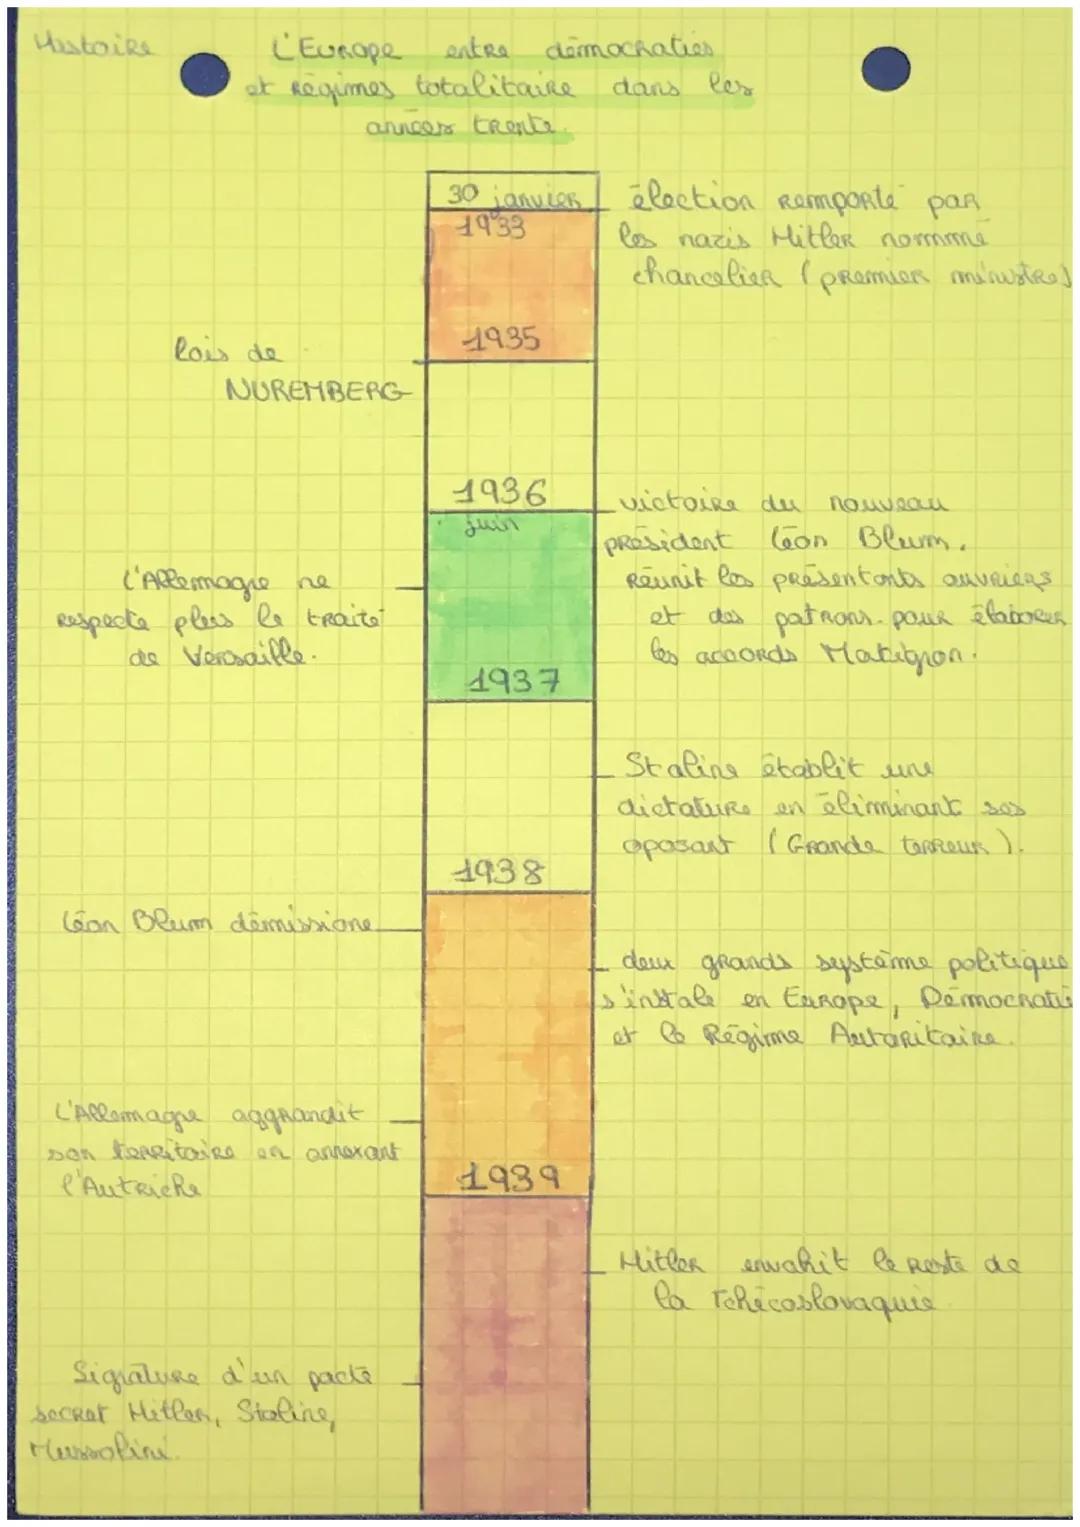 Histoire
L'Europe entre démocraties
et Régimes totalitaire dans les
années trente.
30 janvier
1933
élection remporté par
les nazis Hitler nommé
chancelier (premier ministre)
1935
lois de
NUREMBERG
1936
juin
victoire du nouveau
président Léon Blum.
Réunit les présentants ouvriers
et des patrons. pour élaborer
les accords Matignon.
L'Allemagne ne
respecte plus le traité
de Versaille.
1937
Staline établit une
dictature en éliminant ses
oposant (Grande terreur).
1938
Léon Blum démissione
deux grands système politique
s'instale en Europe, Démocratie
et le Régime Autoritaire.
L'Allemagne aggrandit
son territoire en annexant
l'Autriche
1939
Hitler envahit le reste de
la Tchécoslovaquie
Signature d'un pacte
secret Hitler, Staline,
Mussolini.